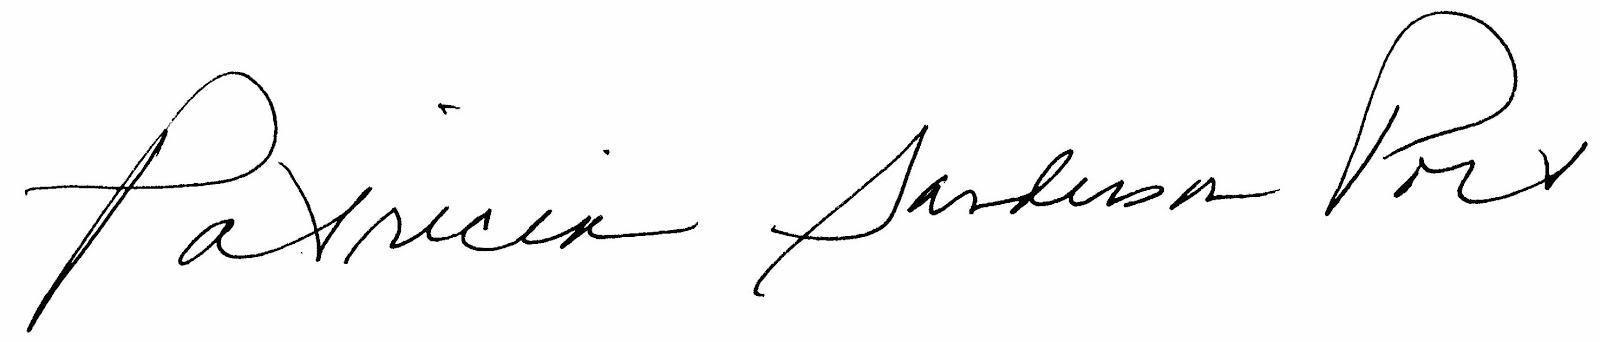 Patricia Sanderson Port